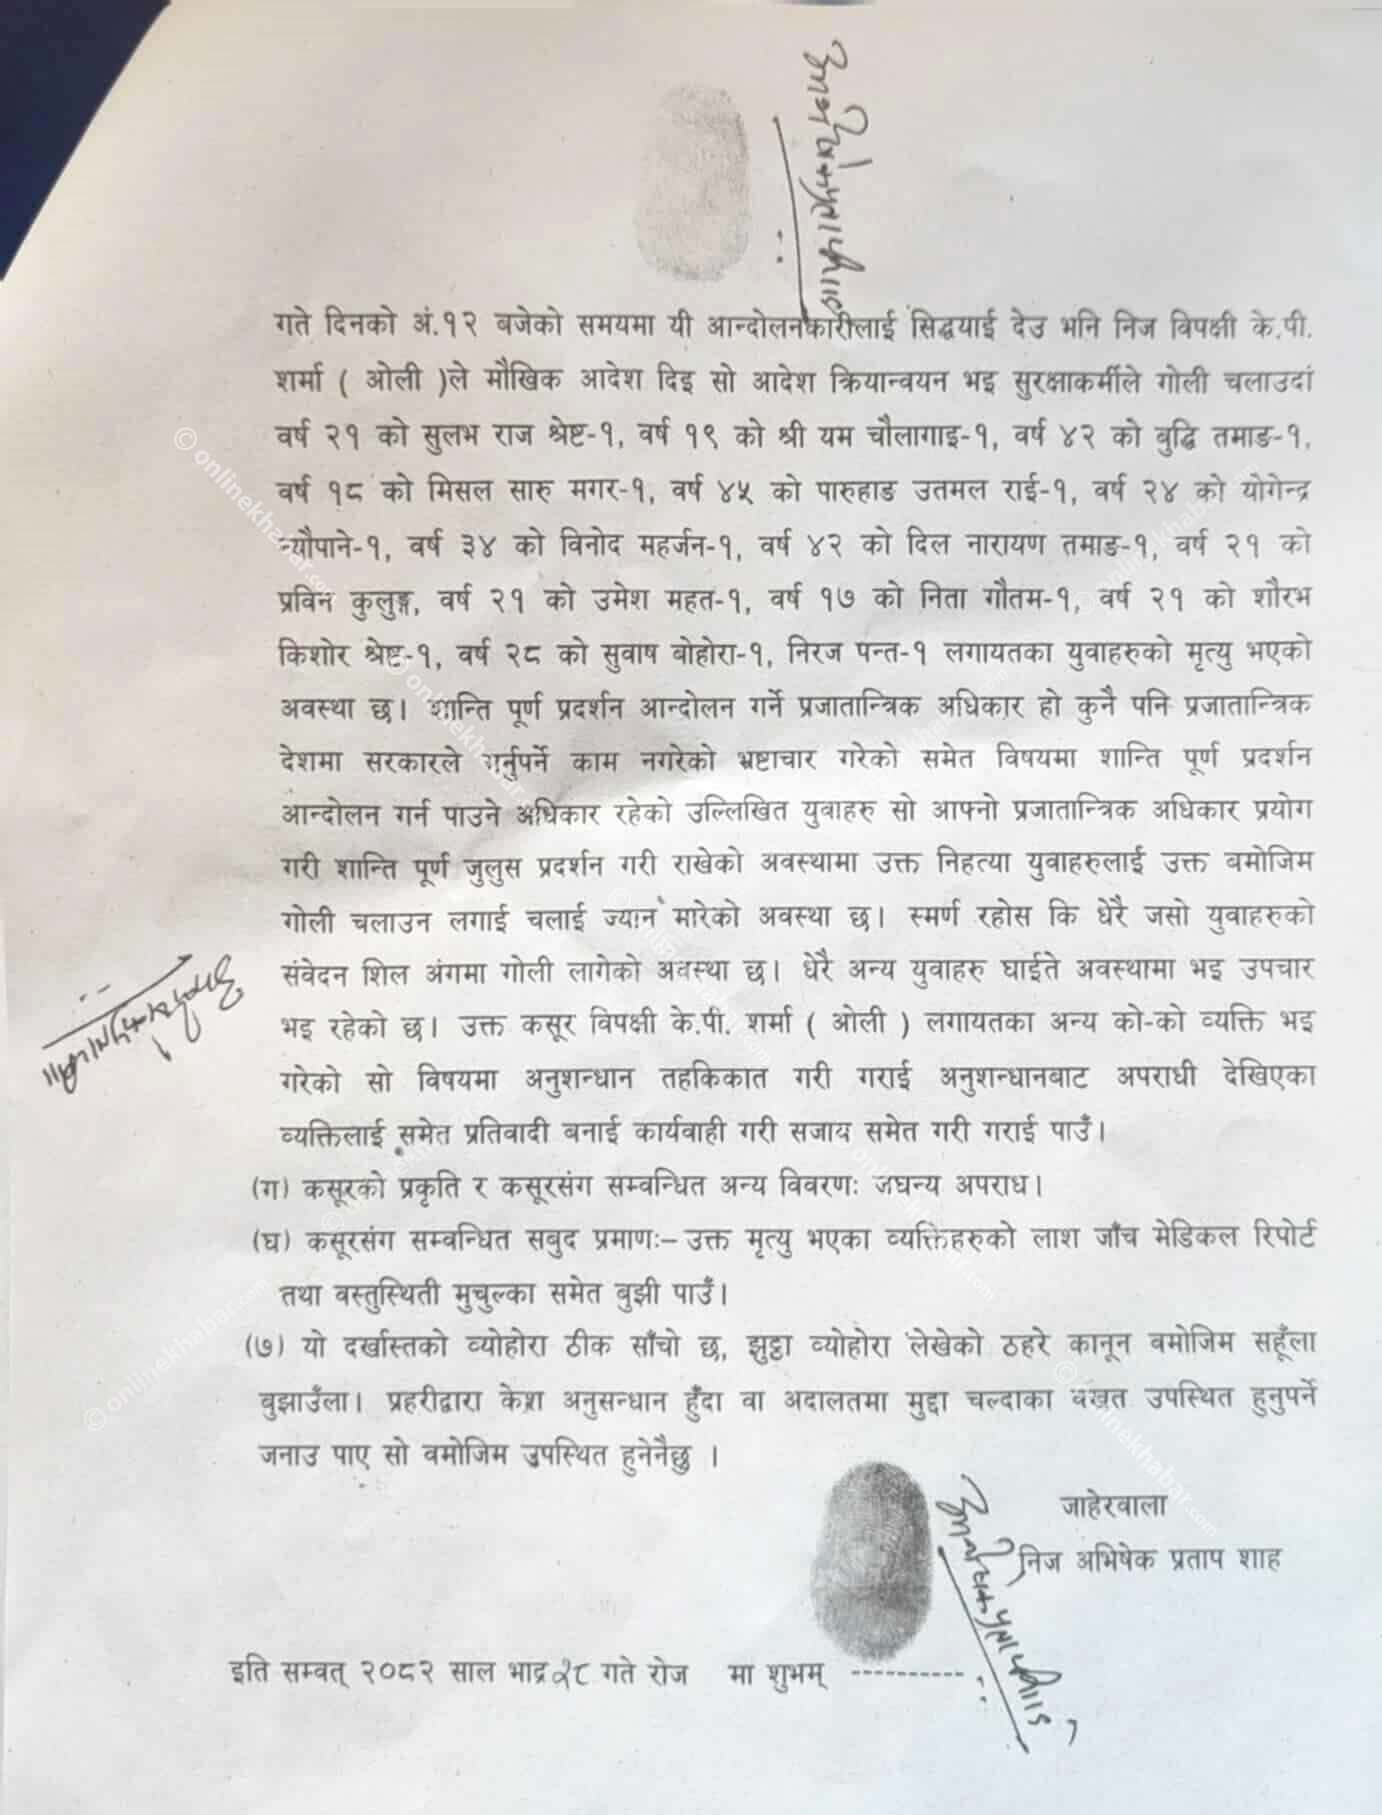 गते दिनको अं.१२ बजेको समयमा यी आन्दोलनकारीलाई सिद्धयाई देउ भनि निज विपक्षी के.पी.
शर्मा ( ओली )ले मौखिक आदेश दिइ सो आदेश क्रियान्वयन भइ सुरक्षाकर्मीले गोली चलाउदां
वर्ष २१ को सुलभ राज श्रेष्ट-१, वर्ष १९ को श्री यम चौलागाइ-१, वर्ष ४२ को बुद्धि तमाङ-१,
वर्ष १८ को मिसल सारु मगर-१, वर्ष ४५ को पारुहाङ उतमल राई-१, वर्ष २४ को योगेन्द्र
न्यौपाने-१, वर्ष ३४ को विनोद महर्जन-१, वर्ष ४२ को दिल नारायण तमाङ-१, वर्ष २१ को
प्रविन कुलुङ्ग, वर्ष २१ को उमेश महत-१, वर्ष १७ को निता गौतम-१, वर्ष २१ को शौरभ
किशोर श्रेष्ट-१, वर्ष २८ को सुवाष वोहोरा-१, निरज पन्त-१ लगायतका युवाहरुको मृत्यु भएको
अवस्था छ। शान्ति पूर्ण प्रदर्शन आन्दोलन गर्ने प्रजातान्त्रिक अधिकार हो कुनै पनि प्रजातान्त्रिक
देशमा सरकारले गर्नुपर्ने काम नगरेको भ्रष्टाचार गरेको समेत विषयमा शान्ति पूर्ण प्रदर्शन
आन्दोलन गर्न पाउने अधिकार रहेको उल्लिखित युवाहरु सो आफ्नो प्रजातान्त्रिक अधिकार प्रयोग
गरी शान्ति पूर्ण जुलुस प्रदर्शन गरी राखेको अवस्थामा उक्त निहत्या युवाहरुलाई उक्त बमोजिम
गोली चलाउन लगाई चलाई ज्यान मारेको अवस्था छ। स्मर्ण रहोस कि धेरै जसो युवाहरुको
संवेदन शिल अंगमा गोली लागेको अवस्था छ। धेरै अन्य युवाहरु घाईते अवस्थामा भइ उपचार
भइ रहेको छ। उक्त कसूर विपक्षी के.पी. शर्मा ( ओली ) लगायतका अन्य को-को व्यक्ति भइ
गरेको सो विषयमा अनुशन्धान तहकिकात गरी गराई अनुशन्धानबाट अपराधी देखिएका
व्यक्तिलाई समेत प्रतिवादी बनाई कार्यवाही गरी सजाय समेत गरी गराई पाउँ।
(ग) कसूरको प्रकृति र कसूरसंग सम्वन्धित अन्य विवरणः जघन्य अपराध।
(घ) कसूरसंग सम्वन्धित सबुद प्रमाणः– उक्त मृत्यु भएका व्यक्तिहरुको लाश जाँच मेडिकल रिपोर्ट
तथा वस्तुस्थिती मुचुल्का समेत बुझी पाउँ।
(७) यो दर्खास्तको व्योहोरा ठीक साँचो छ, झुट्ठा व्योहोरा लेखेको ठहरे कानून वमोजिम सहूँला
बुझाउँला। प्रहरीद्वारा केश अनुसन्धान हुँदा वा अदालतमा मुद्दा चल्दाका वखत उपस्थित हुनुपर्ने
जनाउ पाए सो वमोजिम उपस्थित हुनेनैछु ।
जाहेरवाला
निज अभिषेक प्रताप शाह
इति सम्वत् २०८२ साल भाद्र २८ गते रोज मा शुभम् -----------
© onlinekhabar.com